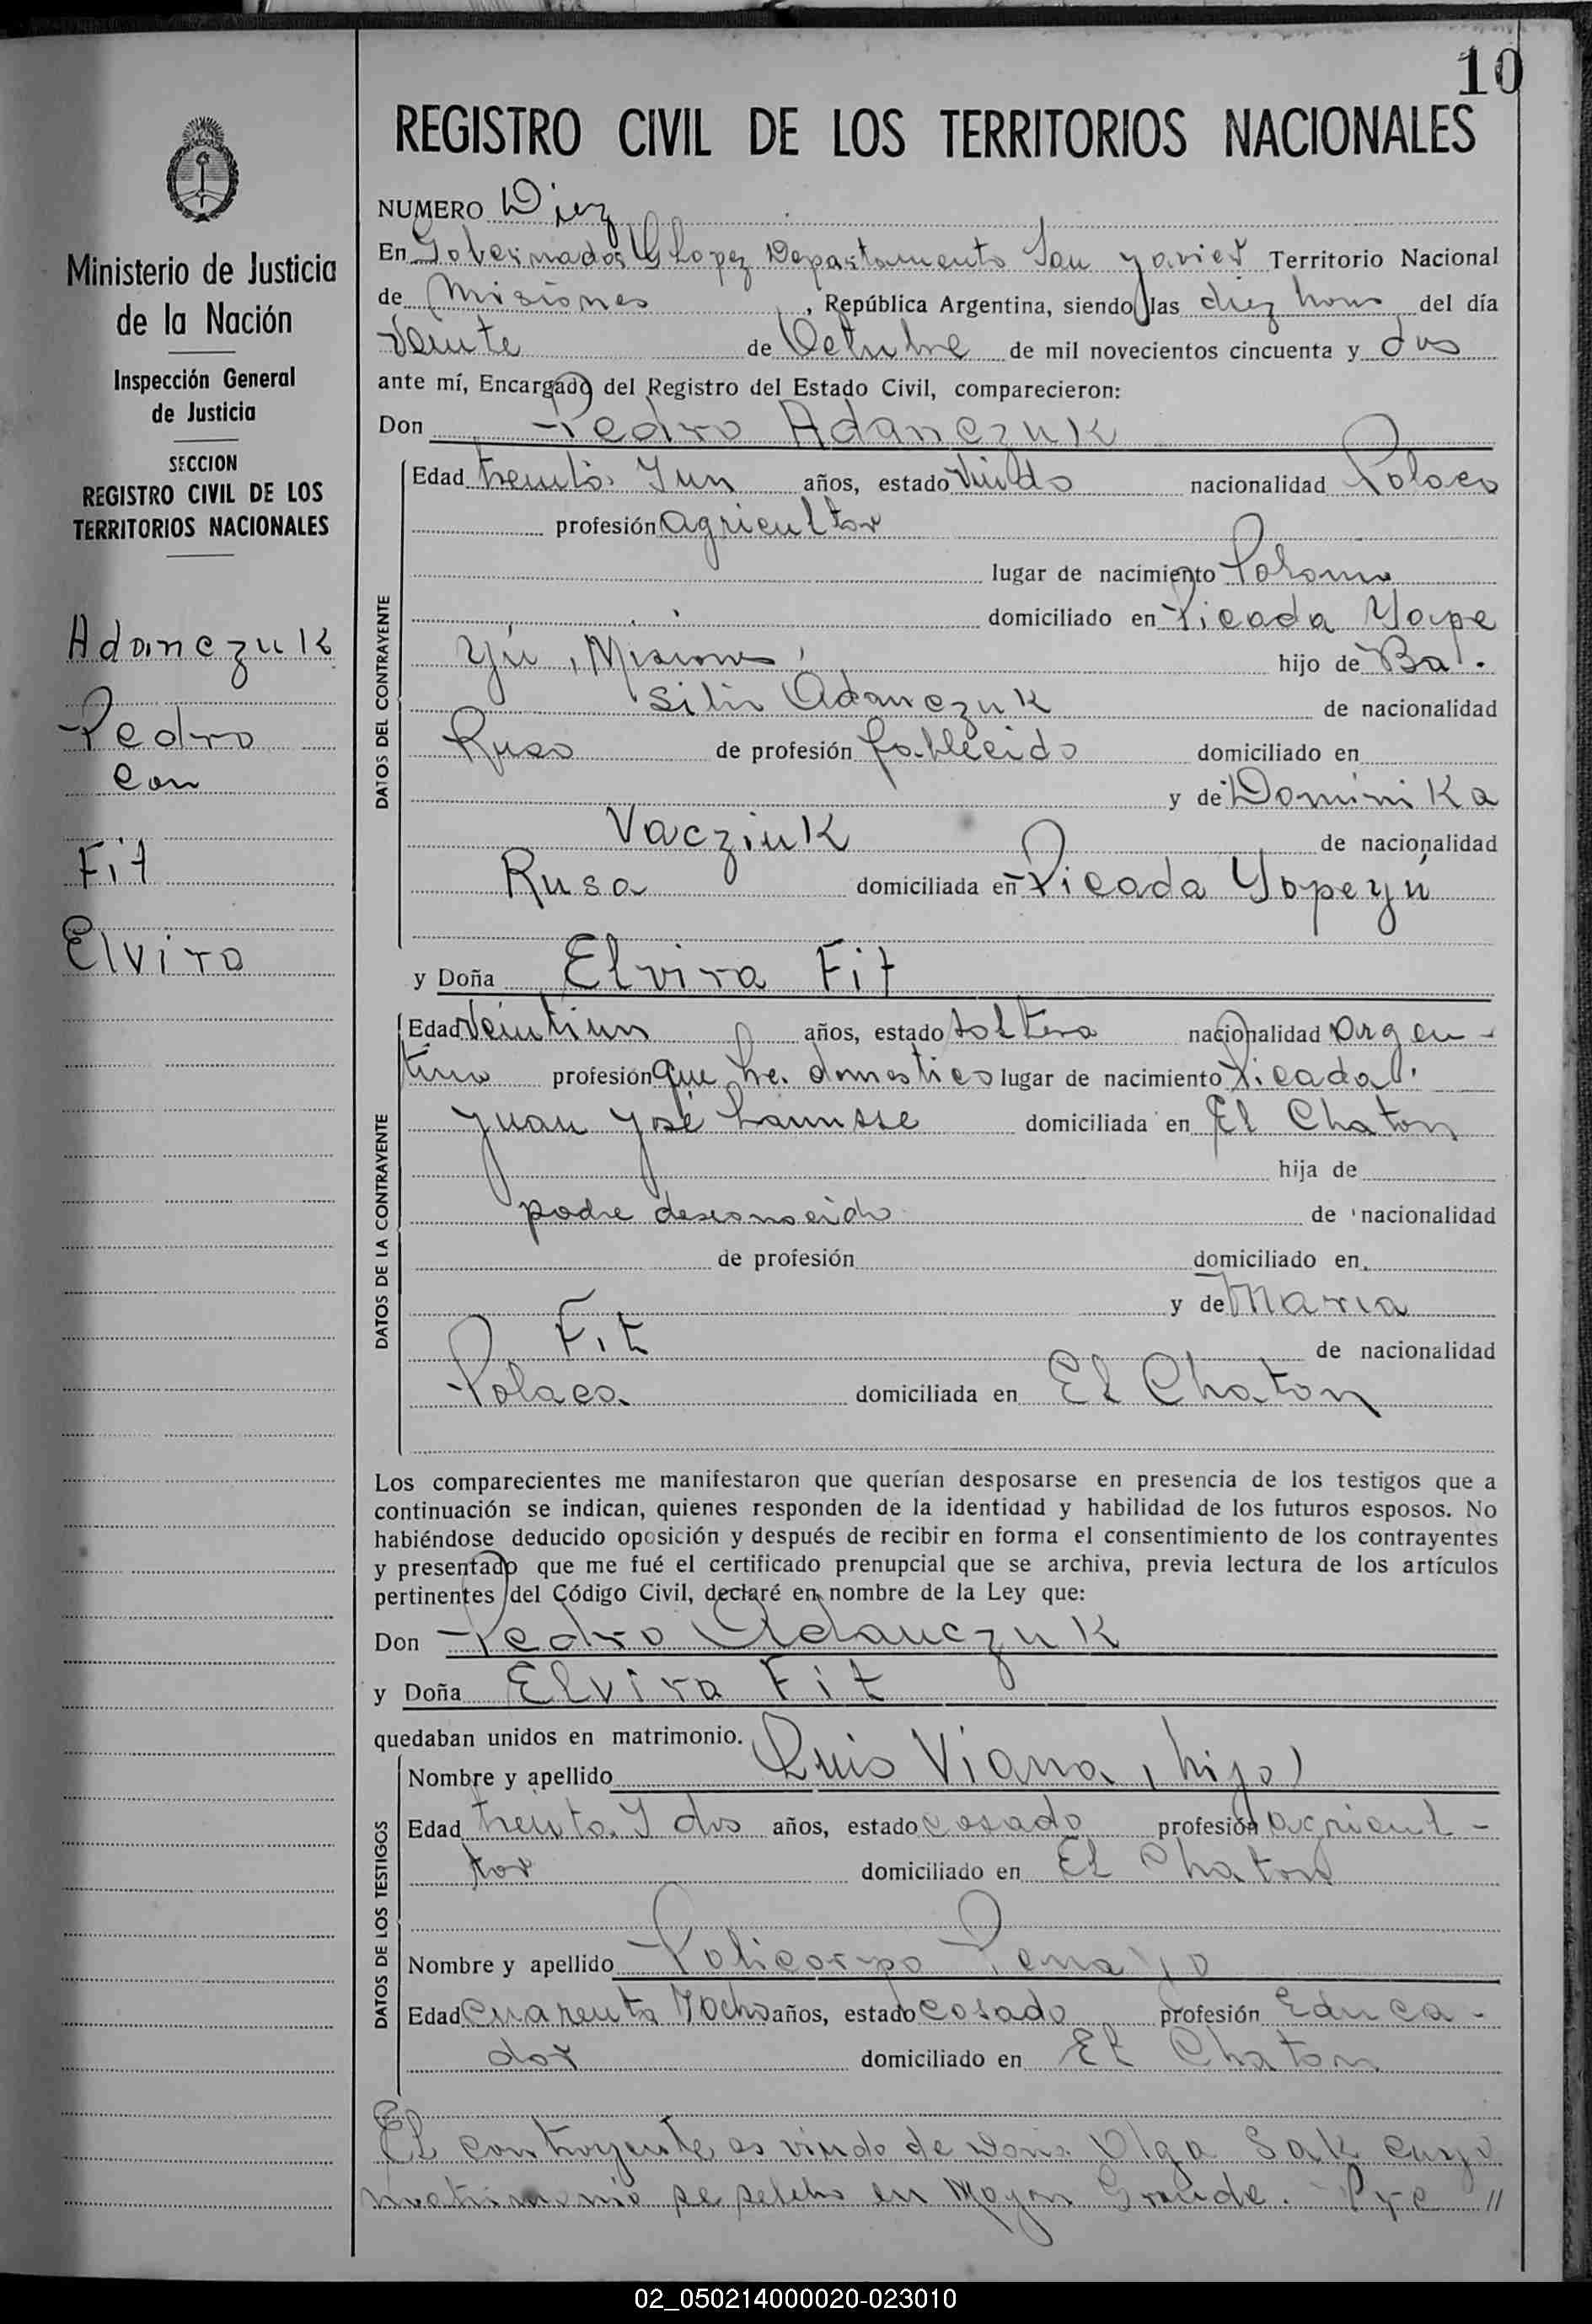 10
REGISTRO CIVIL DE LOS TERRITORIOS NACIONALES
Ministerio de Justicia
de la Nación
Inspección General
de Justicia
SECCION
REGISTRO CIVIL DE LOS
TERRITORIOS NACIONALES
Adanczuk
Pedro
con
Fit
Elvira
NUMERO Diez
En Gobernador Lopez Departamento San Javier Territorio Nacional
de Misiones, República Argentina, siendo las diez horas del día
Veinte de Octubre de mil novecientos cincuenta y dos
ante mí, Encargado del Registro del Estado Civil, comparecieron:
Don Pedro Adanczuk
DATOS DEL CONTRAYENTE
Edad treinta y un años, estado Viudo nacionalidad Polaco
profesión agricultor
lugar de nacimiento Polonia
domiciliado en Picada Yape
Yú, Misiones hijo de Ba
silio Adanczuk de nacionalidad
Ruso de profesión fallecido domiciliado en
y de Dominika
Vacziuk de nacionalidad
Rusa domiciliada en Picada Yapeyú
y Doña Elvira Fit
DATOS DE LA CONTRAYENTE
Edad Veintiun años, estado soltera nacionalidad argen-
tina profesión que hs. domesticos lugar de nacimiento Picada
Juan José Lanusse domiciliada en El Chaton
hija de
padre desconocido de nacionalidad
de profesión domiciliado en
y de Maria
Fit de nacionalidad
Polaca domiciliada en El Chaton
Los comparecientes me manifestaron que querían desposarse en presencia de los testigos que a
continuación se indican, quienes responden de la identidad y habilidad de los futuros esposos. No
habiéndose deducido oposición y después de recibir en forma el consentimiento de los contrayentes
y presentado que me fué el certificado prenupcial que se archiva, previa lectura de los artículos
pertinentes del Código Civil, declaré en nombre de la Ley que:
Don Pedro Adanczuk
y Doña Elvira Fit
quedaban unidos en matrimonio.
DATOS DE LOS TESTIGOS
Nombre y apellido Luis Viana, hijo)
Edad treinta y dos años, estado casado profesión agricul-
tor domiciliado en El Chaton
Nombre y apellido Policarpo Penayo
Edad cuarenta y ocho años, estado casado profesión Educa-
dor domiciliado en El Chaton
El contrayente es viudo de Doña Olga Sak cuyo
matrimonio se celebro en Mojon Grande. Pre //
02_050214000020-023010